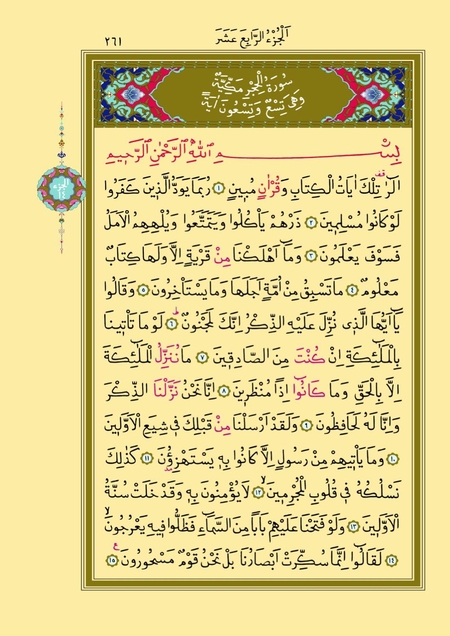 اَلْجُزْءُ الرَّابِعَ عَشَرَ
٢٦١
سُورَةُ الْحِجْرِ مَكِّيَّةٌ
وَهِيَ تِسْعٌ وَتِسْعُونَ اٰيَةً
الجزء
بِسْمِ اللّٰهِ الرَّحْمٰنِ الرَّحِيمِ
الٓرٰ تِلْكَ اٰيَاتُ الْكِتَابِ وَقُرْاٰنٍ مُبِينٍ ١ رُبَمَا يَوَدُّ الَّذِينَ كَفَرُوا
لَوْ كَانُوا مُسْلِمِينَ ٢ ذَرْهُمْ يَأْكُلُوا وَيَتَمَتَّعُوا وَيُلْهِهِمُ الْاَمَلُ
فَسَوْفَ يَعْلَمُونَ ٣ وَمَٓا اَهْلَكْنَا مِنْ قَرْيَةٍ اِلَّا وَلَهَا كِتَابٌ
مَعْلُومٌ ٤ مَا تَسْبِقُ مِنْ اُمَّةٍ اَجَلَهَا وَمَا يَسْتَأْخِرُونَ ٥ وَقَالُوا
يَٓا اَيُّهَا الَّذِي نُزِّلَ عَلَيْهِ الذِّكْرُ اِنَّكَ لَمَجْنُونٌ ٦ لَوْ مَا تَأْتِينَا
بِالْمَلٰٓئِكَةِ اِنْ كُنْتَ مِنَ الصَّادِقِينَ ٧ مَا نُنَزِّلُ الْمَلٰٓئِكَةَ
اِلَّا بِالْحَقِّ وَمَا كَانُٓوا اِذًا مُنْظَرِينَ ٨ اِنَّا نَحْنُ نَزَّلْنَا الذِّكْرَ
وَاِنَّا لَهُ لَحَافِظُونَ ٩ وَلَقَدْ اَرْسَلْنَا مِنْ قَبْلِكَ فِي شِيَعِ الْاَوَّلِينَ
١٠ وَمَا يَأْتِيهِمْ مِنْ رَسُولٍ اِلَّا كَانُوا بِهِ يَسْتَهْزِؤُنَ ١١ كَذٰلِكَ
نَسْلُكُهُ فِي قُلُوبِ الْمُجْرِمِينَ ١٢ لَا يُؤْمِنُونَ بِهِ وَقَدْ خَلَتْ سُنَّةُ
الْاَوَّلِينَ ١٣ وَلَوْ فَتَحْنَا عَلَيْهِمْ بَابًا مِنَ السَّمَٓاءِ فَظَلُّوا فِيهِ يَعْرُجُونَ
١٤ لَقَالُٓوا اِنَّمَا سُكِّرَتْ اَبْصَارُنَا بَلْ نَحْنُ قَوْمٌ مَسْحُورُونَ ١٥